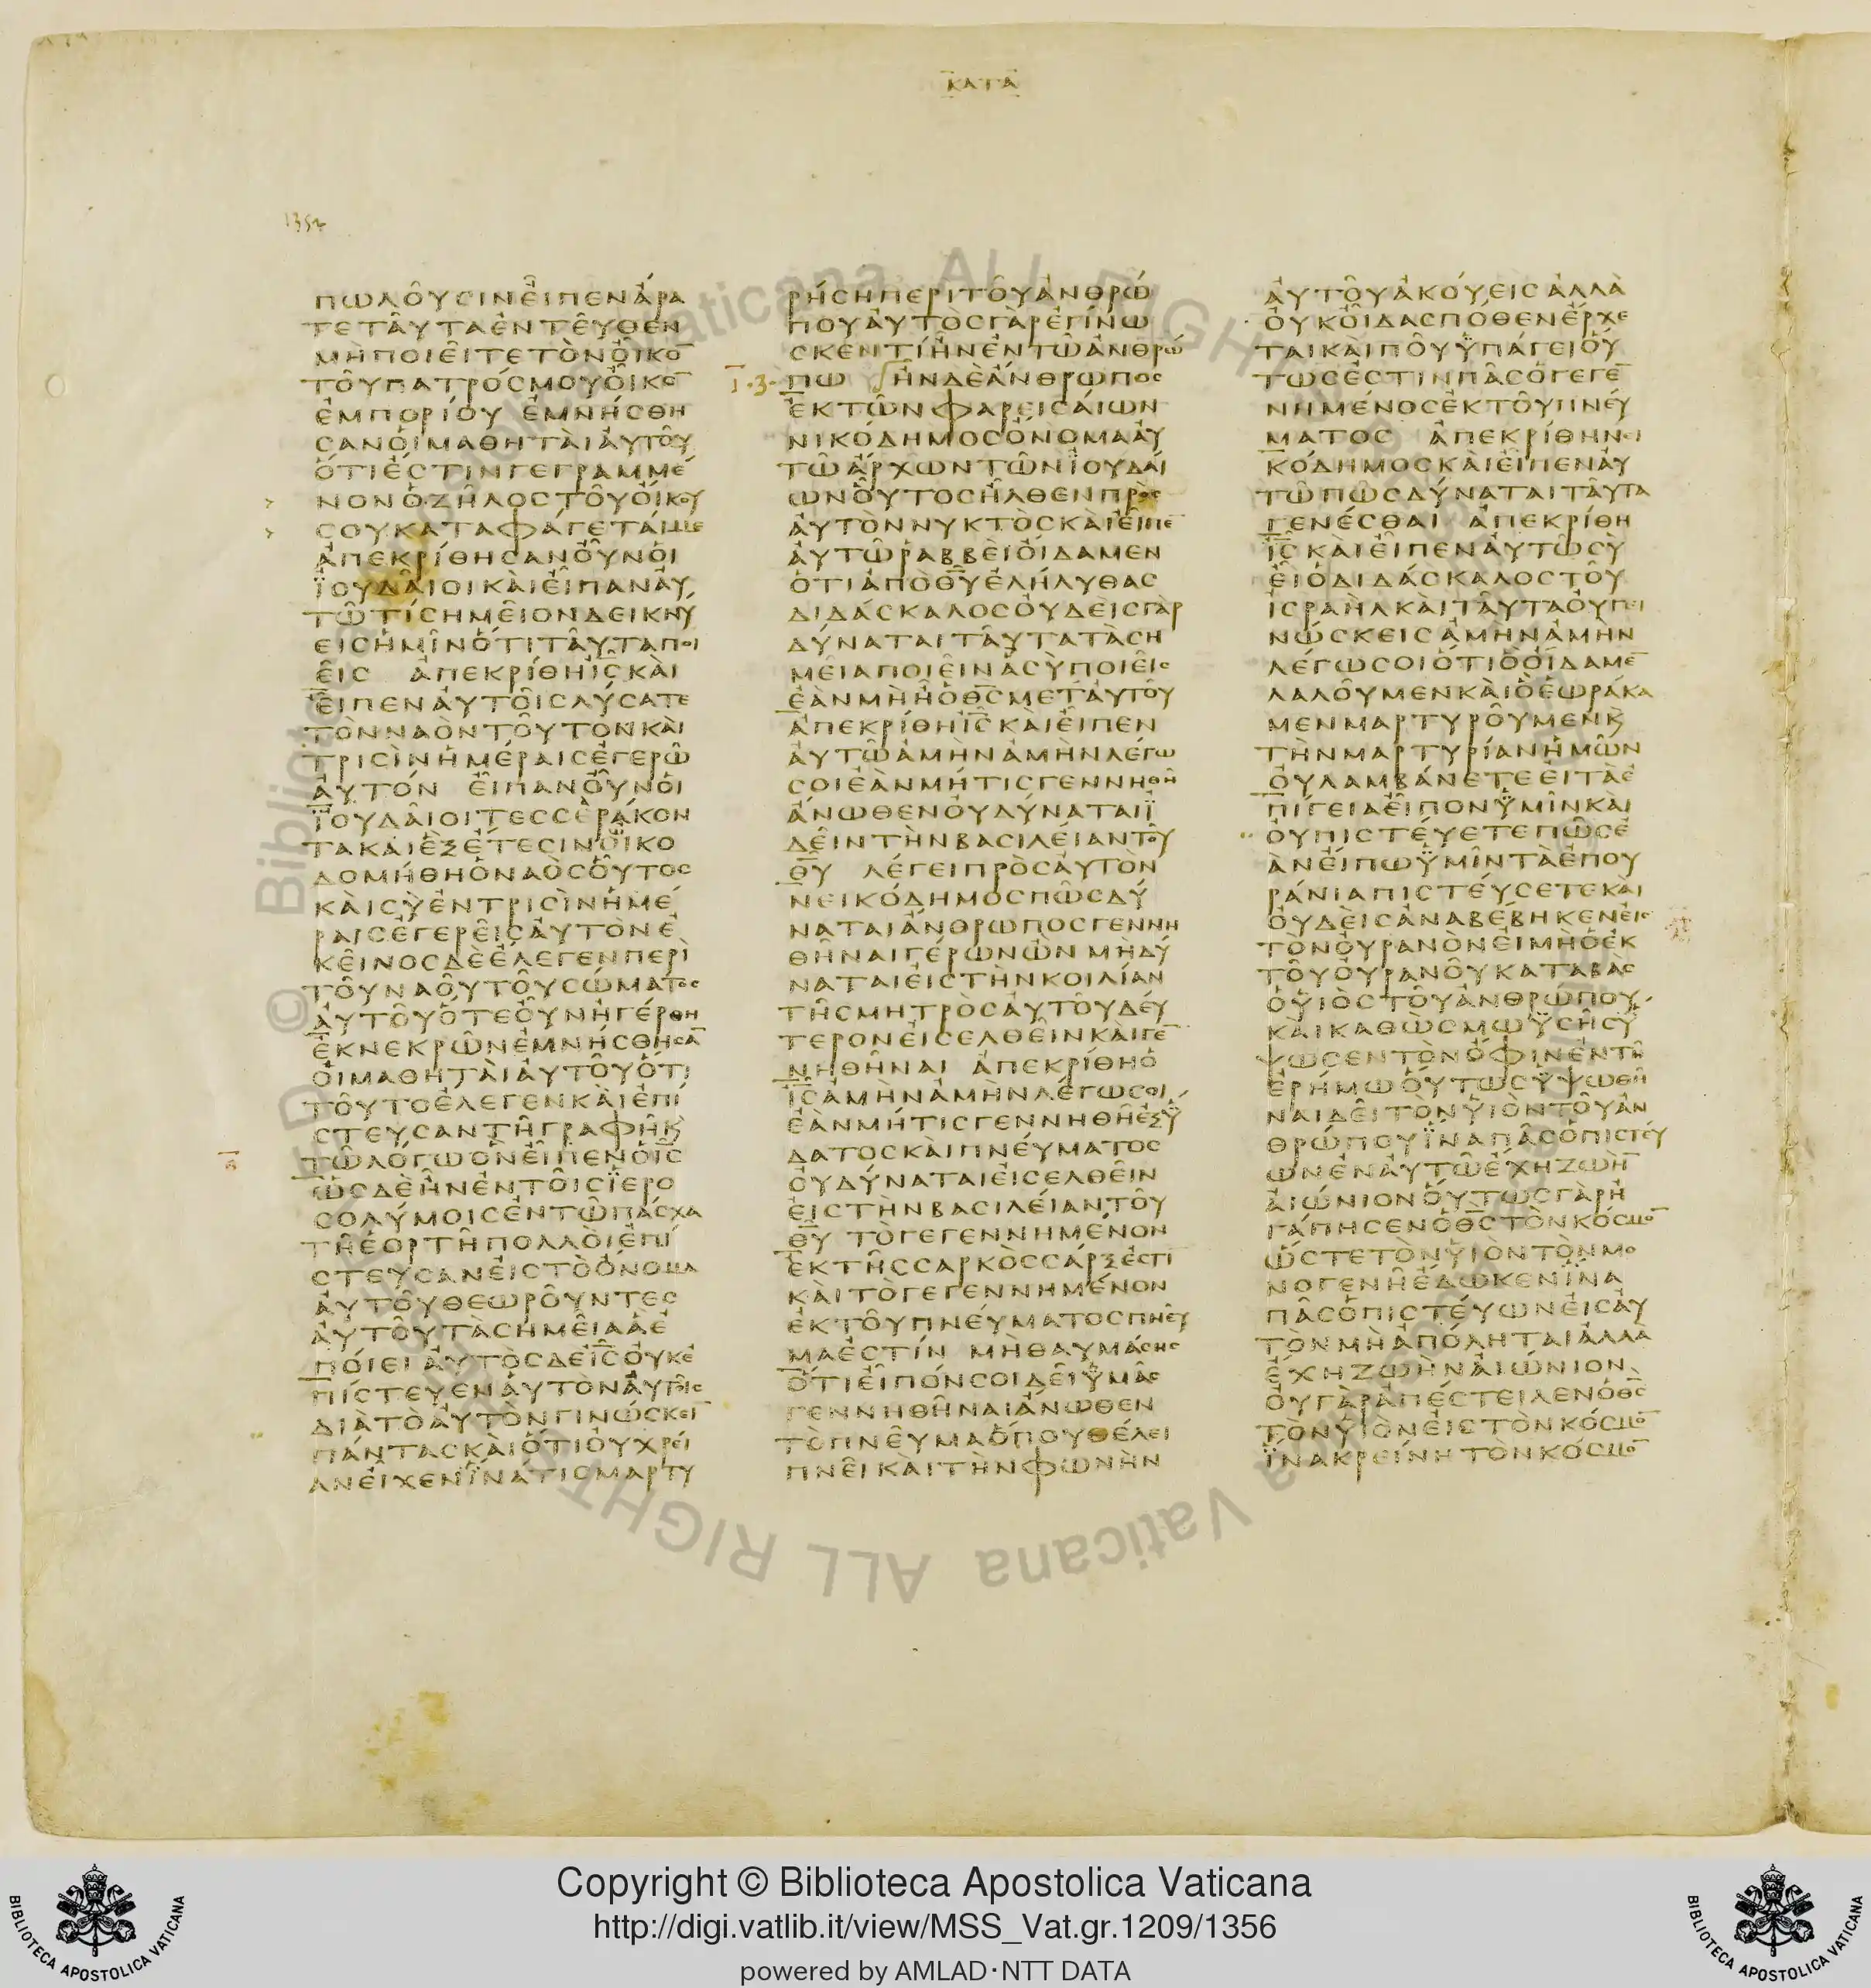 ΚΑΤΑ
1352
ΠΩΛΟΥΣΙΝΕΙΠΕΝΑΡΑ
ΤΕΤΑΥΤΑΕΝΤΕΥΘΕΝ
ΜΗΠΟΙΕΙΤΕΤΟΝΟΙΚΟ̅
ΤΟΥΠΑΤΡΟΣΜΟΥΟΙΚΟ̅
ΕΜΠΟΡΙΟΥ ΕΜΝΗΣΘΗ
ΣΑΝΟΙΜΑΘΗΤΑΙΑΥΤΟΥ
ΟΤΙΕΣΤΙΝΓΕΓΡΑΜΜΕ
ΝΟΝΟΖΗΛΟΣΤΟΥΟΙΚΟΥ
ΣΟΥΚΑΤΑΦΑΓΕΤΑΙΜΕ
ΑΠΕΚΡΙΘΗΣΑΝΟΥΝΟΙ
ΪΟΥΔΑΙΟΙΚΑΙΕΙΠΑΝΑΥ
ΤΩΤΙΣΗΜΕΙΟΝΔΕΙΚΝΥ
ΕΙΣΗΜΙΝΟΤΙΤΑΥΤΑΠΟΙ
ΕΙΣ ΑΠΕΚΡΙΘΗΙ̅Σ̅ΚΑΙ
ΕΙΠΕΝΑΥΤΟΙΣΛΥΣΑΤΕ
ΤΟΝΝΑΟΝΤΟΥΤΟΝΚΑΙ
ΤΡΙΣΙΝΗΜΕΡΑΙΣΕΓΕΡΩ
ΑΥΤΟΝ ΕΙΠΑΝΟΥΝΟΙ
ΪΟΥΔΑΙΟΙΤΕΣΣΕΡΑΚΟΝ
ΤΑΚΑΙΕΞΕΤΕΣΙΝΟΙΚΟ
ΔΟΜΗΘΗΟΝΑΟΣΟΥΤΟΣ
ΚΑΙΣΥΕΝΤΡΙΣΙΝΗΜΕ
ΡΑΙΣΕΓΕΡΕΙΣΑΥΤΟΝΕ
ΚΕΙΝΟΣΔΕΕΛΕΓΕΝΠΕΡΙ
ΤΟΥΝΑΟΥΤΟΥΣΩΜΑΤΟΣ
ΑΥΤΟΥΟΤΕΟΥΝΗΓΕΡΘΗ
ΕΚΝΕΚΡΩΝΕΜΝΗΣΘΗΣΑ̅
ΟΙΜΑΘΗΤΑΙΑΥΤΟΥΟΤΙ
ΤΟΥΤΟΕΛΕΓΕΝΚΑΙΕΠΙ
ΣΤΕΥΣΑΝΤΗΓΡΑΦΗΚ
ΤΩΛΟΓΩΟΝΕΙΠΕΝΟΙ̅Σ̅
ΩΣΔΕΗΝΕΝΤΟΙΣΪΕΡΟ
ΣΟΛΥΜΟΙΣΕΝΤΩΠΑΣΧΑ
ΤΗΕΟΡΤΗΠΟΛΛΟΙΕΠΙ
ΣΤΕΥΣΑΝΕΙΣΤΟΟΝΟΜΑ
ΑΥΤΟΥΘΕΩΡΟΥΝΤΕΣ
ΑΥΤΟΥΤΑΣΗΜΕΙΑΑΕ
ΠΟΙΕΙΑΥΤΟΣΔΕΙ̅Σ̅ΟΥΚΕ
ΠΙΣΤΕΥΕΝΑΥΤΟΝΑΥΤΟΙΣ
ΔΙΑΤΟΑΥΤΟΝΓΙΝΩΣΚΕΙ̅
ΠΑΝΤΑΣΚΑΙΟΤΙΟΥΧΡΕΙ
ΑΝΕΙΧΕΝΪΝΑΤΙΣΜΑΡΤΥ
ΡΗΣΗΠΕΡΙΤΟΥΑΝΘΡΩ
ΠΟΥΑΥΤΟΣΓΑΡΕΓΙΝΩ
ΣΚΕΝΤΙΗΝΕΝΤΩΑΝΘΡΩ
ΠΩ ΗΝΔΕΑΝΘΡΩΠΟΣ
ΕΚΤΩΝΦΑΡΕΙΣΑΙΩΝ
ΝΙΚΟΔΗΜΟΣΟΝΟΜΑΑΥ
ΤΩΑΡΧΩΝΤΩΝΪΟΥΔΑΙ
ΩΝΟΥΤΟΣΗΛΘΕΝΠΡΟΣ
ΑΥΤΟΝΝΥΚΤΟΣΚΑΙΕΙΠΕ̅
ΑΥΤΩΡΑΒΒΕΙΟΙΔΑΜΕΝ
ΟΤΙΑΠΟΘ̅Υ̅ΕΛΗΛΥΘΑΣ
ΔΙΔΑΣΚΑΛΟΣΟΥΔΕΙΣΓΑΡ
ΔΥΝΑΤΑΙΤΑΥΤΑΤΑΣΗ
ΜΕΙΑΠΟΙΕΙΝΑΣΥΠΟΙΕΙΣ
ΕΑΝΜΗΗΟΘ̅Σ̅ΜΕΤΑΥΤΟΥ
ΑΠΕΚΡΙΘΗΙ̅Σ̅ΚΑΙΕΙΠΕΝ
ΑΥΤΩΑΜΗΝΑΜΗΝΛΕΓΩ
ΣΟΙΕΑΝΜΗΤΙΣΓΕΝΝΗΘΗ
ΑΝΩΘΕΝΟΥΔΥΝΑΤΑΙΪ
ΔΕΙΝΤΗΝΒΑΣΙΛΕΙΑΝΤΟΥ
Θ̅Υ̅ ΛΕΓΕΙΠΡΟΣΑΥΤΟΝ
ΝΕΙΚΟΔΗΜΟΣΠΩΣΔΥ
ΝΑΤΑΙΑΝΘΡΩΠΟΣΓΕΝΝΗ
ΘΗΝΑΙΓΕΡΩΝΩΝ ΜΗΔΥ
ΝΑΤΑΙΕΙΣΤΗΝΚΟΙΛΙΑΝ
ΤΗΣΜΗΤΡΟΣΑΥΤΟΥΔΕΥ
ΤΕΡΟΝΕΙΣΕΛΘΕΙΝΚΑΙΓΕ̅
ΝΗΘΗΝΑΙ ΑΠΕΚΡΙΘΗΟ
Ι̅Σ̅ΑΜΗΝΑΜΗΝΛΕΓΩΣΟΙ
ΕΑΝΜΗΤΙΣΓΕΝΝΗΘΗΕΞΫ
ΔΑΤΟΣΚΑΙΠΝΕΥΜΑΤΟΣ
ΟΥΔΥΝΑΤΑΙΕΙΣΕΛΘΕΙΝ
ΕΙΣΤΗΝΒΑΣΙΛΕΙΑΝΤΟΥ
Θ̅Υ̅ ΤΟΓΕΓΕΝΝΗΜΕΝΟΝ
ΕΚΤΗΣΣΑΡΚΟΣΣΑΡΞΕΣΤΙ̅
ΚΑΙΤΟΓΕΓΕΝΝΗΜΕΝΟΝ
ΕΚΤΟΥΠΝΕΥΜΑΤΟΣΠΝΕΥ
ΜΑΕΣΤΙΝ ΜΗΘΑΥΜΑΣΗΣ
ΟΤΙΕΙΠΟΝΣΟΙΔΕΙΫΜΑΣ
ΓΕΝΝΗΘΗΝΑΙΑΝΩΘΕΝ
ΤΟΠΝΕΥΜΑΟΠΟΥΘΕΛΕΙ
ΠΝΕΙΚΑΙΤΗΝΦΩΝΗΝ
ΑΥΤΟΥΑΚΟΥΕΙΣΑΛΛΑ
ΟΥΚΟΙΔΑΣΠΟΘΕΝΕΡΧΕ
ΤΑΙΚΑΙΠΟΥΫΠΑΓΕΙΟΥ
ΤΩΣΕΣΤΙΝΠΑΣΟΓΕΓΕ̅
ΝΗΜΕΝΟΣΕΚΤΟΥΠΝΕΥ
ΜΑΤΟΣ ΑΠΕΚΡΙΘΗΝΙ
ΚΟΔΗΜΟΣΚΑΙΕΙΠΕΝΑΥ
ΤΩΠΩΣΔΥΝΑΤΑΙΤΑΥΤΑ
ΓΕΝΕΣΘΑΙ ΑΠΕΚΡΙΘΗ
Ι̅Σ̅ΚΑΙΕΙΠΕΝΑΥΤΩΣΥ
ΕΙΟΔΙΔΑΣΚΑΛΟΣΤΟΥ
ΙΣΡΑΗΛΚΑΙΤΑΥΤΑΟΥΓΕΙ
ΝΩΣΚΕΙΣΑΜΗΝΑΜΗΝ
ΛΕΓΩΣΟΙΟΤΙΟΟΙΔΑΜΕ̅
ΛΑΛΟΥΜΕΝΚΑΙΟΕΩΡΑΚΑ
ΜΕΝΜΑΡΤΥΡΟΥΜΕΝΚ
ΤΗΝΜΑΡΤΥΡΙΑΝΗΜΩΝ
ΟΥΛΑΜΒΑΝΕΤΕΕΙΤΑΕ
ΠΙΓΕΙΑΕΙΠΟΝΫΜΙΝΚΑΙ
ΟΥΠΙΣΤΕΥΕΤΕΠΩΣΕ
ΑΝΕΙΠΩΫΜΙΝΤΑΕΠΟΥ
ΡΑΝΙΑΠΙΣΤΕΥΣΕΤΕΚΑΙ
ΟΥΔΕΙΣΑΝΑΒΕΒΗΚΕΝΕΙΣ
ΤΟΝΟΥΡΑΝΟΝΕΙΜΗΟΕΚ
ΤΟΥΟΥΡΑΝΟΥΚΑΤΑΒΑΣ
ΟΫΙΟΣΤΟΥΑΝΘΡΩΠΟΥ
ΚΑΙΚΑΘΩΣΜΩΫΣΗΣΥ
ΨΩΣΕΝΤΟΝΟΦΙΝΕΝΤΗ
ΕΡΗΜΩΟΥΤΩΣΫΨΩΘΗ
ΝΑΙΔΕΙΤΟΝΫΙΟΝΤΟΥΑΝ
ΘΡΩΠΟΥΪΝΑΠΑΣΟΠΙΣΤΕΥ
ΩΝΕΝΑΥΤΩΕΧΗΖΩΗ̅
ΑΙΩΝΙΟΝΟΥΤΩΣΓΑΡΗ
ΓΑΠΗΣΕΝΟΘ̅Σ̅ΤΟΝΚΟΣΜΟ̅
ΩΣΤΕΤΟΝΫΙΟΝΤΟΝΜΟ
ΝΟΓΕΝΗΕΔΩΚΕΝΪΝΑ
ΠΑΣΟΠΙΣΤΕΥΩΝΕΙΣΑΥ
ΤΟΝΜΗΑΠΟΛΗΤΑΙΑΛΛΑ
ΕΧΗΖΩΗΝΑΙΩΝΙΟΝ
ΟΥΓΑΡΑΠΕΣΤΕΙΛΕΝΟΘ̅Σ̅
ΤΟΝΫΙΟΝΕΙΣΤΟΝΚΟΣΜΟ̅
ΪΝΑΚΡΕΙΝΗΤΟΝΚΟΣΜΟ̅
Copyright © Biblioteca Apostolica Vaticana
http://digi.vatlib.it/view/MSS_Vat.gr.1209/1356
powered by AMLAD·NTT DATA
BIBLIOTECA APOSTOLICA VATICANA
BIBLIOTECA APOSTOLICA VATICANA